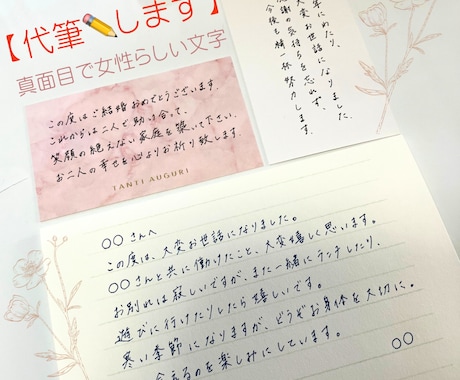 【代筆✏️します】
真面目で女性らしい文字
この度はご結婚おめでとうございます。
これからは二人で助け合って、
笑顔の絶えない家庭を築いて下さい。
お二人の幸せを心よりお祈り致します。
TANTI AUGURI
年にわたり、
大変お世話になりました。
感謝の気持ちを忘れず、
今後も精一杯努力します。
○○さんへ
この度は、大変お世話になりました。
○○さんと共に働けたこと、大変嬉しく思います。
お別れは寂しいですが、また一緒にランチしたり、
遊びに行けたりしたら嬉しいです。
寒い季節になりますが、どうぞお身体を大切に。
会えるのを楽しみにしています。
○○